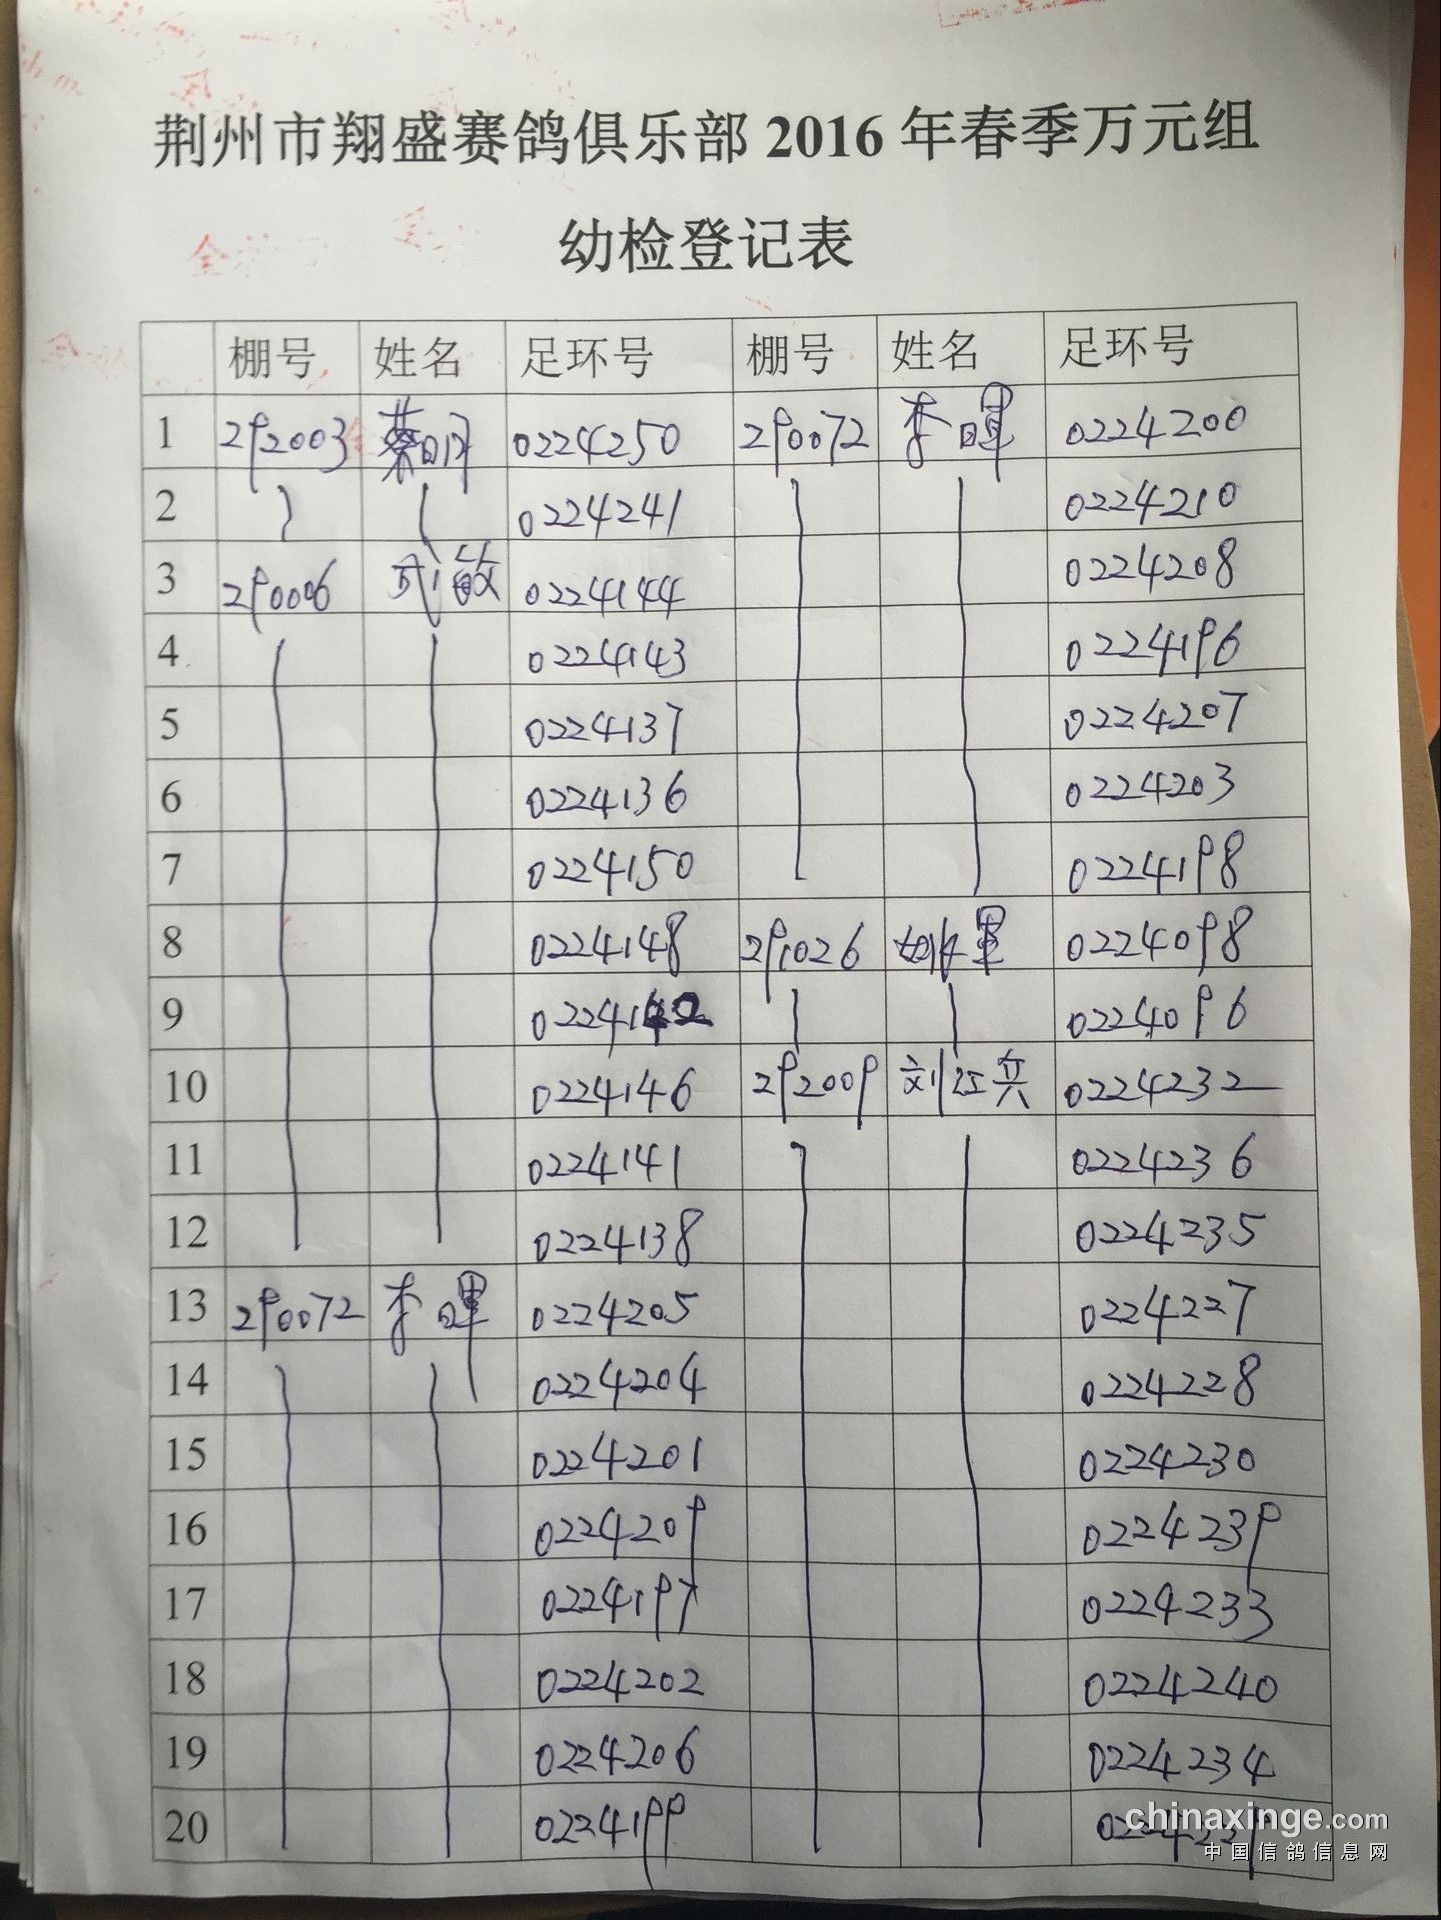 荆州市翔盛赛鸽俱乐部 2016 年春季万元组
幼检登记表
棚号 姓名 足环号 棚号 姓名 足环号
1 292003 蔡明 0224250 290072 李晖 0224200
2 0224241 0224210
3 290006 武敏 0224144 0224208
4 0224143 0224196
5 0224137 0224207
6 0224136 0224203
7 0224150 0224198
8 0224148 291026 军 0224098
9 0224142 0224096
10 0224146 292009 刘江兵 0224232
11 0224141 0224236
12 0224138 0224235
13 290072 李晖 0224205 0224227
14 0224204 0224228
15 0224201 0224230
16 0224209 0224239
17 0224197 0224233
18 0224202 0224240
19 0224206 0224234
20 0224199
chinaxinge.com
中国信鸽信息网